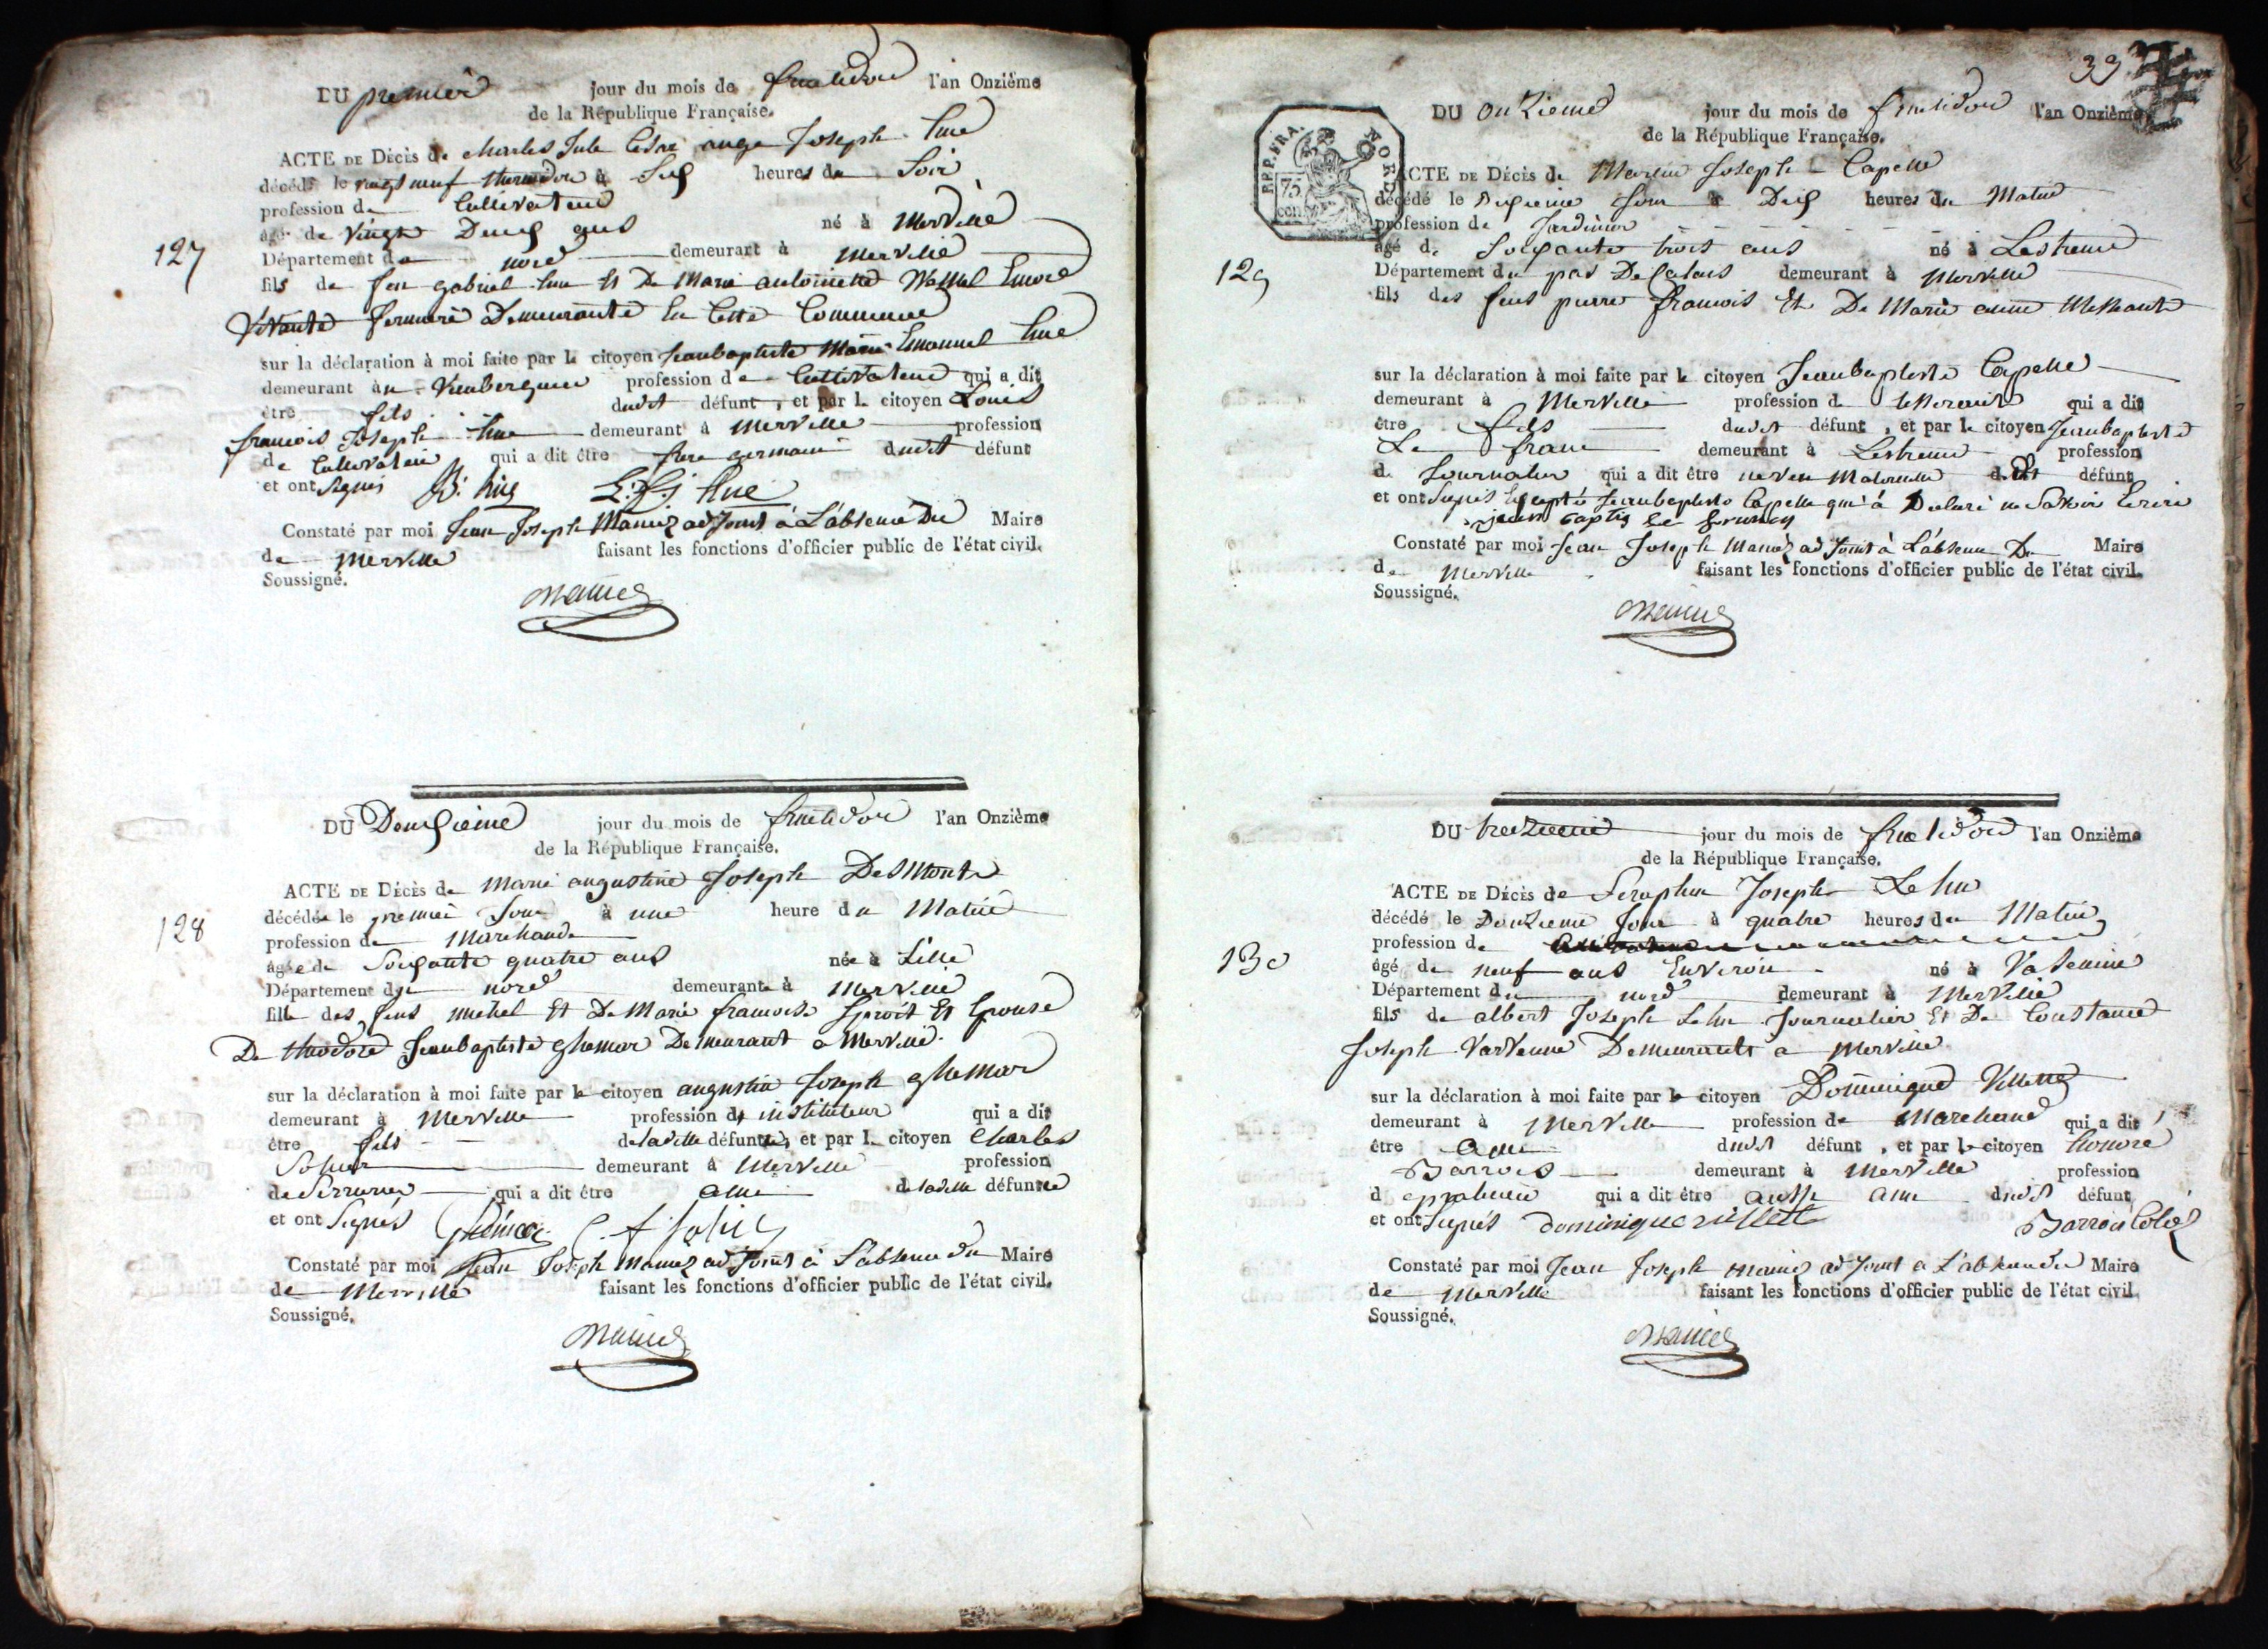 DU premier jour du mois de fructidor l'an Onzième
de la République Française.
ACTE DE DÉCÈS de charles Jule César ange Joseph hue
décédé le vingt neuf thermidor à Six heures du Soir
profession de Cultivateur
âgé de Vingt Deux ans né à Merville
127
Département du nord demeurant à Merville
fils de feu gabriel hue Et De Marie antoinette Encore
Vivante fermiere Demeurante En Cette Commune
sur la déclaration à moi faite par le citoyen Jeanbaptiste Marie Emanuel hue
demeurant àu Vieuberquin profession de Cultivateur qui a dit
être fils dudit défunt, et par le citoyen Louis
francois Joseph hue demeurant à Merville profession
de Cultivateur qui a dit être frere germain dudit défunt
et ont Signés L. f. j hue
Constaté par moi Jean Joseph Maniez adjoint à L'absence Du Maire
de Merville faisant les fonctions d'officier public de l'état civil.
Soussigné.
Maniez
DU Deuxieme jour du mois de fructidor l'an Onzième
de la République Française.
ACTE DE DÉCÈS de Marie augustine Joseph DesMont
décédée le premier Jour à une heure du Matin
128
profession de Marchande
âgée de Soixante quatre ans née à Lille
Département du nord demeurante à Merville
fille des feus michel Et De Marie francoise Et Epouse
De théodore Jeanbaptiste ghemar Demeurant a Merville.
sur la déclaration à moi faite par le citoyen augustin Joseph ghemar
demeurant à Merville profession de instituteur qui a dit
être fils deladitte défunte, et par le citoyen Charles
demeurant à Merville profession
de Serrurier qui a dit être ami deladitte défunte
et ont Signés Ghémar
Constaté par moi Jean Joseph Maniez adjoint à L'absence du Maire
de Merville faisant les fonctions d'officier public de l'état civil.
Soussigné.
Maniez
33
REP. FRA. NORD
75 cen.
DU onzieme jour du mois de fructidor l'an Onzième
de la République Française.
ACTE DE DÉCÈS de Joseph Capelle
décédé le dixieme Jour à Dix heures du Matin
profession de Jardinier
âgé de Soixante trois ans né à Lestrem
129
Département du pas De Calais demeurant à Merville
fils des feus pierre francois Et De Marie anne
sur la déclaration à moi faite par le citoyen Jeanbaptiste Capelle
demeurant à Merville profession de qui a dit
être fils dudit défunt, et par le citoyen Jeanbaptiste
Le franc demeurant à Lestrem profession
de Journalier qui a dit être neveu Maternelle dudit défunt
et ont Signés Excepté Jeanbaptiste Capelle qui à Déclaré ne Savoir Ecrire
Constaté par moi Jean Joseph Maniez adjoint à L'absence Du Maire
de Merville faisant les fonctions d'officier public de l'état civil.
Soussigné.
Maniez
DU treizieme jour du mois de fructidor l'an Onzième
de la République Française.
ACTE DE DÉCÈS de Seraphin Joseph Le hu
décédé le Douzieme Jour à quatre heures du Matin
profession de
130
âgé de neuf ans Environ né à
Département du nord demeurant à Merville
fils de albert Joseph Lehu Journalier Et De Constance
Joseph Demeurants a Merville
sur la déclaration à moi faite par le citoyen Dominique Villette
demeurant à Merville profession de Marchand qui a dit
être ami dudit défunt, et par le citoyen honoré
Barrois demeurant à Merville profession
d qui a dit être aussi ami dudit défunt
et ont Signés dominique villette Barrois
Constaté par moi Jean Joseph Maniez adjoint a L'absence du Maire
de Merville faisant les fonctions d'officier public de l'état civil.
Soussigné.
Maniez